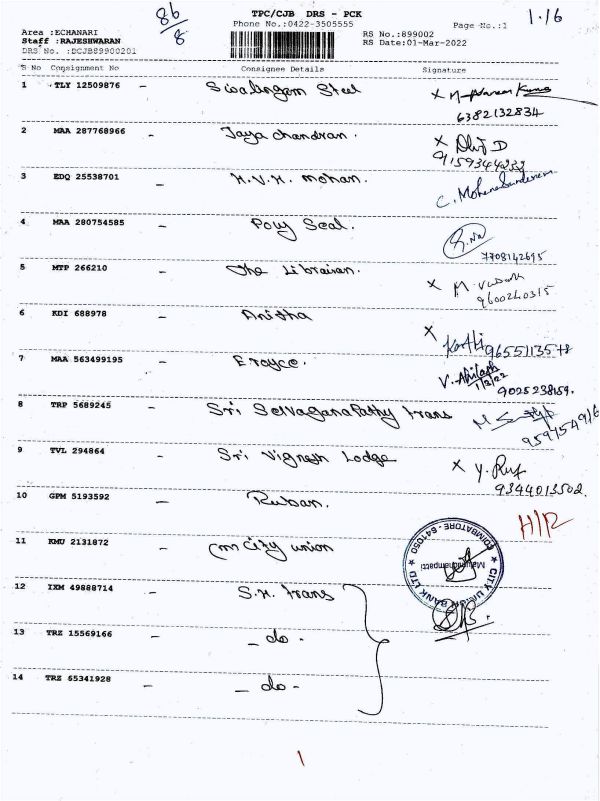 86/8
TPC/CJB DRS - PCK
1.16
Phone No.:0422-3505555
Page No.:1
Area :ECHANARI
Staff :RAJESHWARAN
DRS No. :DCJB89900201
RS No.:899002
RS Date:01-Mar-2022
S No Consignment No Consignee Details Signature
1 TLY 12509876 - Sivalingam Steel X
6382132834
2 MAA 287768966 - Jaya chandran. X
3 EDQ 25538701 - H.V.H. mohan. C. Mohanasundaram
4 MAA 280754585 - Poly Seal.
7708142695
5 MTP 266210 - The Librairan. X
9600240315
6 KDI 688978 - Anitha X
Karthi 9655113578
7 MAA 563499195 - Erayce. V. Abilash
1/3/22
9025238159.
8 TRP 5689245 - Sri SelvaganaPathy trans
9 TVL 294864 - Sri Vignesh Lodge X
9344013502.
10 GPM 5193592 - Ruban. H/R
11 KMU 2131872 - City union
CITY UNION BANK LTD
COIMBATORE - 641050
12 IXM 49888714 - S.H. trans
13 TRZ 15569166 - - do -
14 TRZ 65341928 - - do -